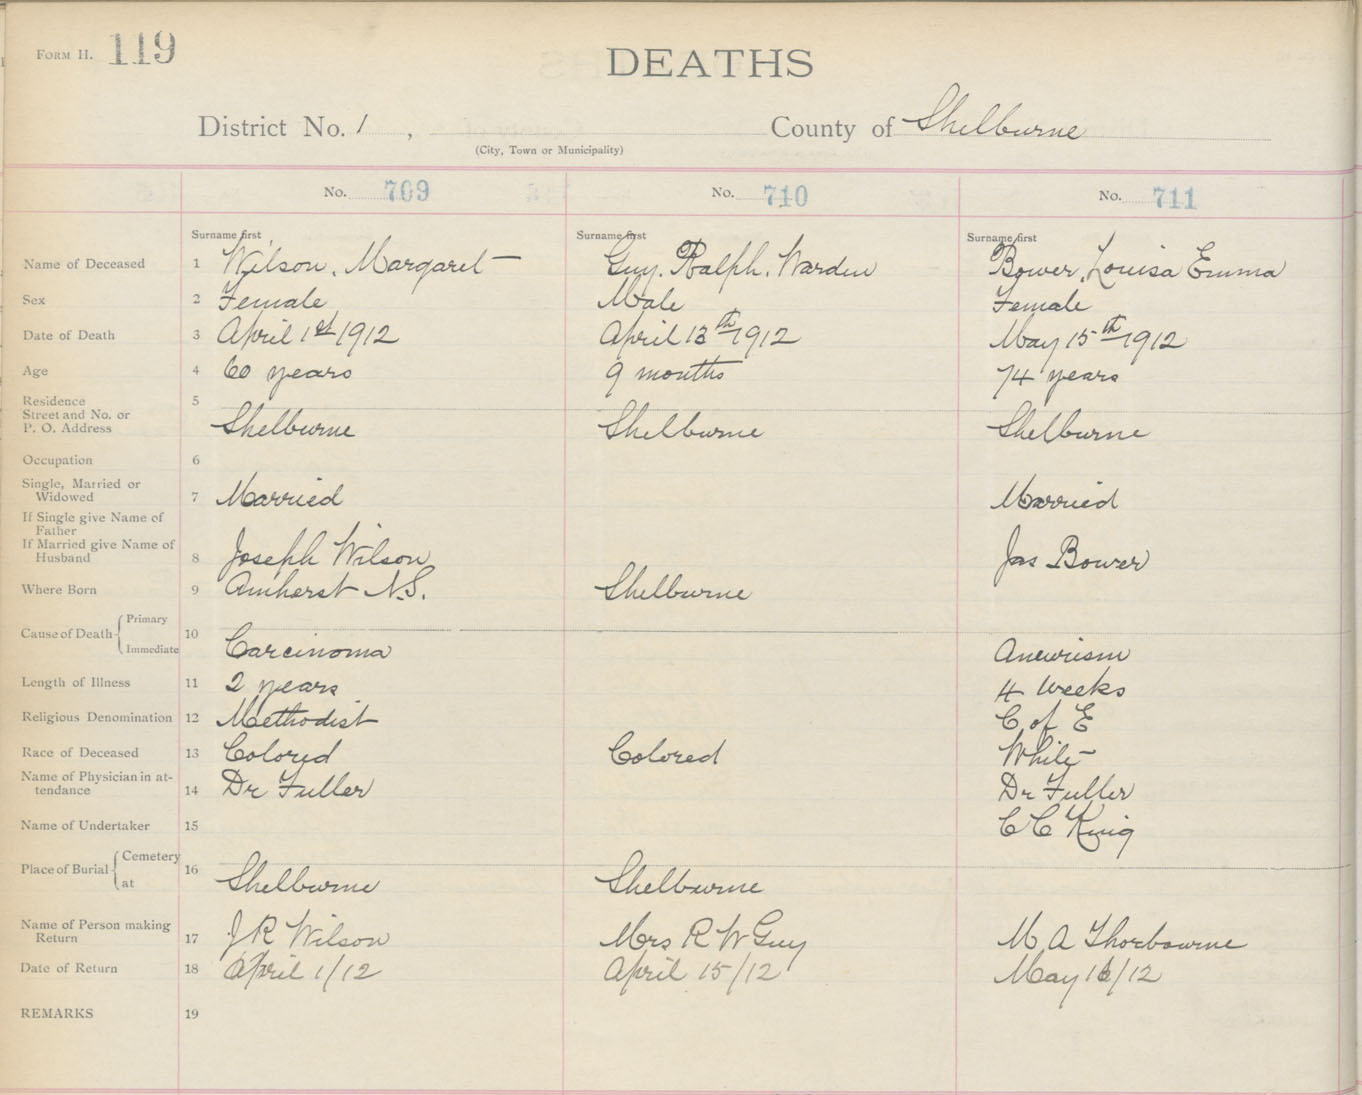 FORM H. 119
DEATHS
District No. 1 , County of Shelburne
(City, Town or Municipality)
No. 709 No. 710 No. 711
Surname first Surname first Surname first
Name of Deceased 1 Wilson, Margaret Guy, Ralph, Warden Bower, Louisa Emma
Sex 2 Female Male Female
Date of Death 3 April 1st 1912 April 13th 1912 May 15th 1912
Age 4 60 years 9 months 74 years
Residence 5
Street and No. or
P. O. Address Shelburne Shelburne Shelburne
Occupation 6
Single, Married or
Widowed 7 Married Married
If Single give Name of
Father
If Married give Name of
Husband 8 Joseph Wilson Jas Bower
Where Born 9 Amherst N.S. Shelburne
Cause of Death Primary
10
Immediate Carcinoma Aneurism
Length of Illness 11 2 years 4 weeks
Religious Denomination 12 Methodist C of E
Race of Deceased 13 Colored Colored White
Name of Physician in at-
tendance 14 Dr Fuller Dr Fuller
Name of Undertaker 15 C C King
Place of Burial Cemetery 16
at Shelburne Shelburne
Name of Person making
Return 17 J R Wilson Mrs R W Guy M A Thorbourne
Date of Return 18 April 1/12 April 15/12 May 16/12
REMARKS 19